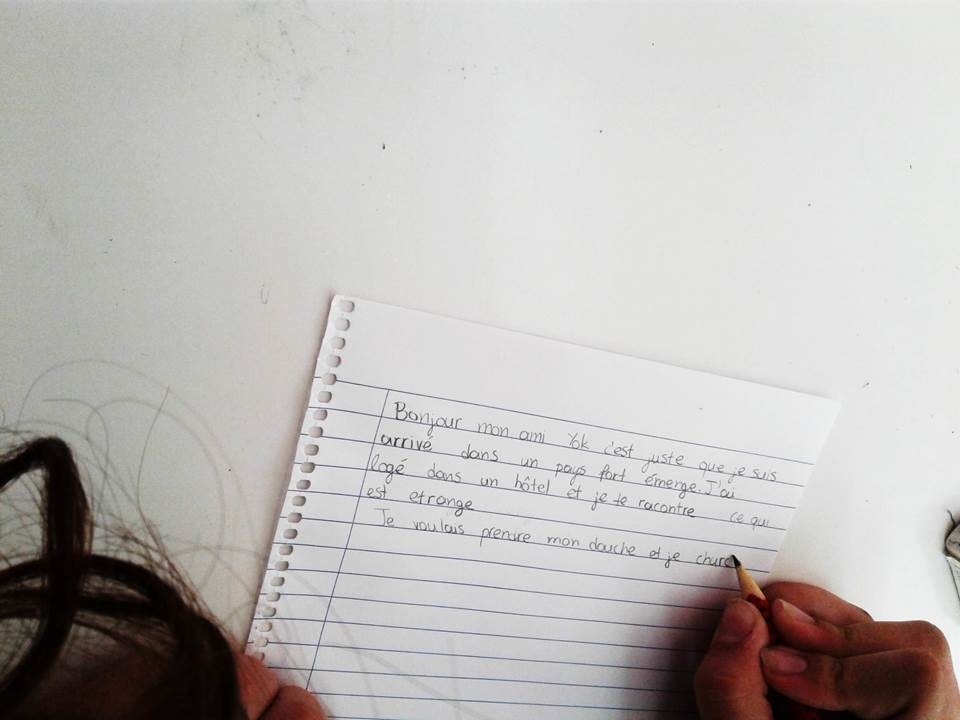 Bonjour mon ami Yok c'est juste que je suis
arrivé dans un pays fort émerge. J'ai
logé dans un hôtel et je te racontre ce qui
est etrange
Je voulais prendre mon douche et je